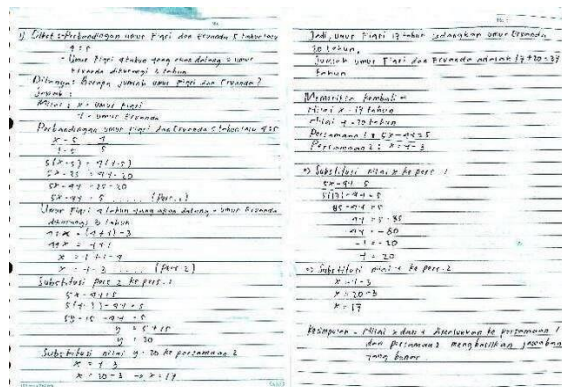 1) Diket : Perbandingan umur Fiqri dan Eruanda 5 tahun lalu
4 : 5
- Umur Fiqri 4 tahun yang akan datang = umur
Eruanda dikurangi 3 tahun
Ditanya : Berapa jumlah umur Fiqri dan Eruanda?
Jawab :
Misal : x = umur Fiqri
y = umur Eruanda
Perbandingan umur Fiqri dan Eruanda 5 tahun lalu 4:5
x - 5 4
y - 5 5
5(x-5) = 4(y-5)
5x - 25 = 4y - 20
5x - 4y = 25 - 20
5x - 4y = 5 ...... (Pers.1)
Umur Fiqri 4 tahun yang akan datang = umur Eruanda
dikurangi 3 tahun
x = y - 3 ..... (Pers 2)
Substitusi pers 2 ke pers.1
5x - 4y = 5
5y - 15 - 4y = 5
y = 5 + 15
y = 20
Substitusi nilai y = 20 ke persamaan 2
x = y - 3
x = 20 - 3 → x = 17
Jadi, umur Fiqri 17 tahun sedangkan umur Eruanda
20 tahun.
Jumlah umur Fiqri dan Eruanda adalah 17 + 20 = 37
tahun
Memeriksa kembali =
Nilai x = 17 tahun
Nilai y = 20 tahun
Persamaan 1 : 5x - 4y = 5
Persamaan 2 : x = y - 3
=> Substitusi nilai x ke pers. 1
5x - 4y = 5
5(17) - 4y = 5
85 - 4y = 5
4y = 5 - 85
4y = -80
-y = -20
y = 20
=> Substitusi nilai y ke pers. 2
x = y - 3
x = 20 - 3
x = 17
Kesimpulan = Nilai x dan y ke persamaan 1
dan persamaan 2 menghasilkan jawaban
yang benar